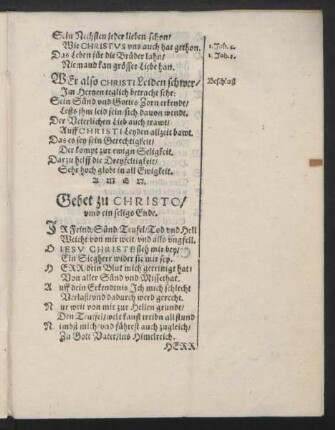 Sein Nechsten jeder lieben schon/
Wie CHRISTVS vns auch hat gethon.
1. Joh. 4.
Das Leben für die Brüder lahn/
1. Joh. 3.
Niemand kan grösser Liebe han.
WEr also CHRISTI Leiden schwer/
Beschluß
Im Hertzen teglich betracht sehr:
Sein Sünd vnd Gottes Zorn erkendt/
Leßts jhm leid sein/ sich dauon wendt.
Der Veterlichen Lieb auch trawt/
Auff CHRISTI Leyden allzeit bawt.
Das es sey sein Gerechtigkeit/
Der kompt zur ewign Seligkeit.
Darzu helff die Dreyfeltigkeit/
Sehr hoch globt in all Ewigkeit.
A M E N.
Gebet zu CHRISTO/
vmb ein seligs Ende.
IR Feind/ Sünd/ Teufel/ Tod vnd Hell
Weicht von mir weit/ vnd alls vngfell.
O IESV CHRISTE steh mir bey/
Ein Siegherr wider sie mir sey.
H ERR/ dein Blut mich gereinigt hat/
Von aller Sünd vnd Missethat.
A uff dein Erkendtnis Ich mich schlecht
Verlasse/ vnd dadurch werd gerecht.
N ur weit von mir zur Hellen grundt/
Den Teufel/ welt/ kanst treibn all stund
N imbst mich/ vnd führest auch zugleich/
Zu Gott Vater/ ins Himelreich.
HERR